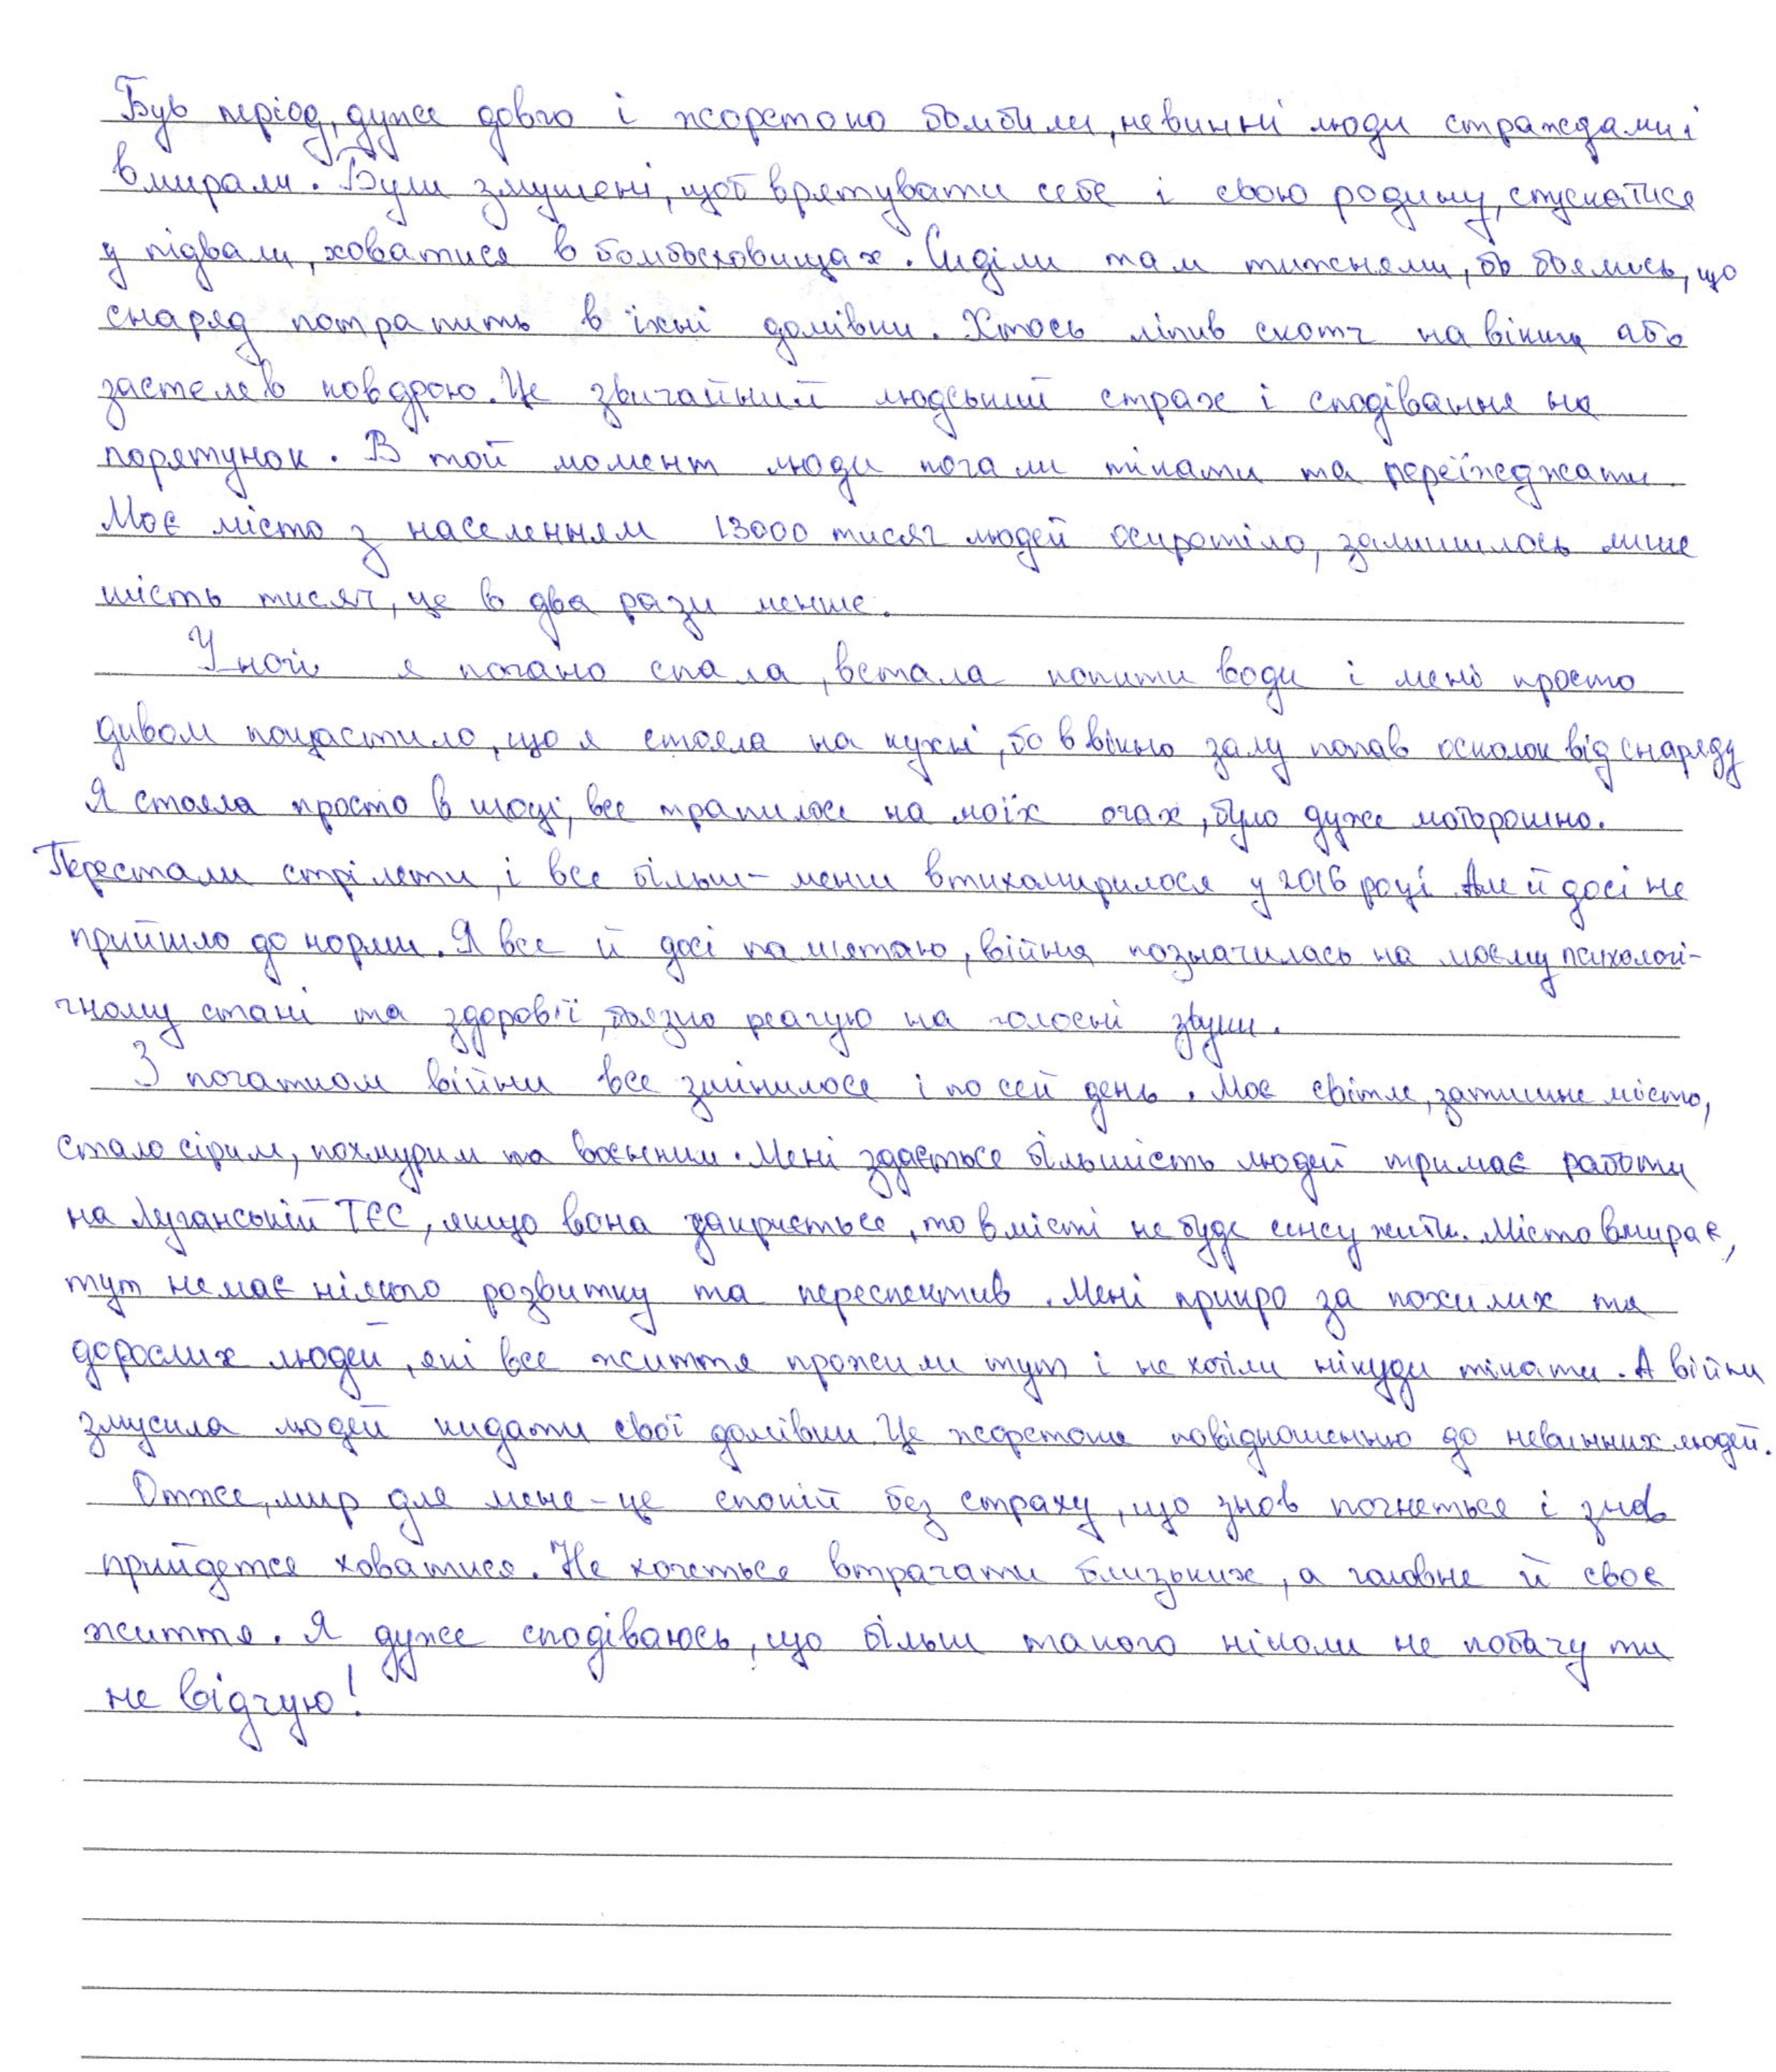 Був період, дуже довго і жорстоко бомбили, невинні люди страждали і
вмирали. Були змушені, щоб врятувати себе і свою родину, спускатися
у підвали, ховатися в бомбосховищах. Сиділи там тижнями, бо боялись, що
снаряд потрапить в їхні домівки. Хтось ліпив скотч на вікна або
застеляв ковдрою. Це звичайний людський страх і сподівання на
порятунок. В той момент люди почали тікати та переїжджати.
Моє місто з населенням 13000 тисяч людей осиротіло, залишилось лише
шість тисяч, це в два рази менше.
Уночі я погано спала, встала попити води і мені просто
дивом пощастило, що я стояла на кухні, бо в вікно залу попав осколок від снаряду
Я стояла просто в шоці, все трапилося на моїх очах, було дуже моторошно.
Перестали стріляти, і все більш-менш втихомирилося у 2016 році. Але й досі не
прийшло до норми. Я все й досі пам'ятаю, війна позначилась на моєму психологі-
чному стані та здоров'ї, боязно реагую на голосні звуки.
З початком війни все змінилося і по сей день. Моє світле, затишне місто,
стало сірим, похмурим та воєнним. Мені здається більшість людей тримає работа
на Луганській ТЕС, якщо вона закриється, то в місті не буде сенсу жити. Місто вмирає,
тут немає ніякого розвитку та переспектив. Мені прикро за похилих та
дорослих людей, які все життя прожили тут і не хотіли нікуди тікати. А війна
змусила людей кидати свої домівки. Це жорстоке повідношенню до невинних людей.
Отже, мир для мене - це спокій без страху, що знов почнеться і знов
прийдется ховатися. Не хочеться втрачати близьких, а головне й своє
життя. Я дуже сподіваюсь, що більш такого ніколи не побачу та
не відчую!